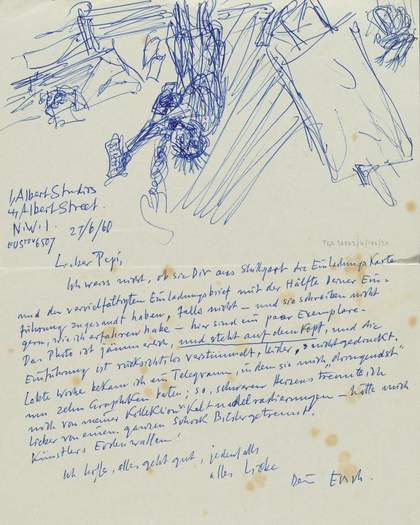 1, Albert Studios
4, Albert Street.
N.W.1.
EUSton 6507
27/6/60
TGA 20052/
Lieber Pepi,
Ich weiss nicht, ob sie Dir aus Stuttgart die Einladungskarte
und den vervielfältigten Einladungsbrief mit der Hälfte Deiner Ein-
führung zugesandt haben, falls nicht – und sie schreiben nicht
gern, wie ich erfahren habe – hier sind ein paar Exemplare.
Das Photo ist jämmerlich, und steht auf dem Kopf, und die
Einführung ist rücksichtslos verstümmelt, leider,
Letzte Woche bekam ich ein Telegramm, in dem sie mich „dringendst"
um zehn Graphiken baten; so, schweren Herzens trennte ich
mich von meiner Kollektion Kaltnadelradierungen – hätte mich
lieber von einem ganzen Schock Bilder getrennt.
Künstlers Erdenwallen!
Ich hoffe, alles geht gut, jedenfalls
alles Liebe
Dein Erich.